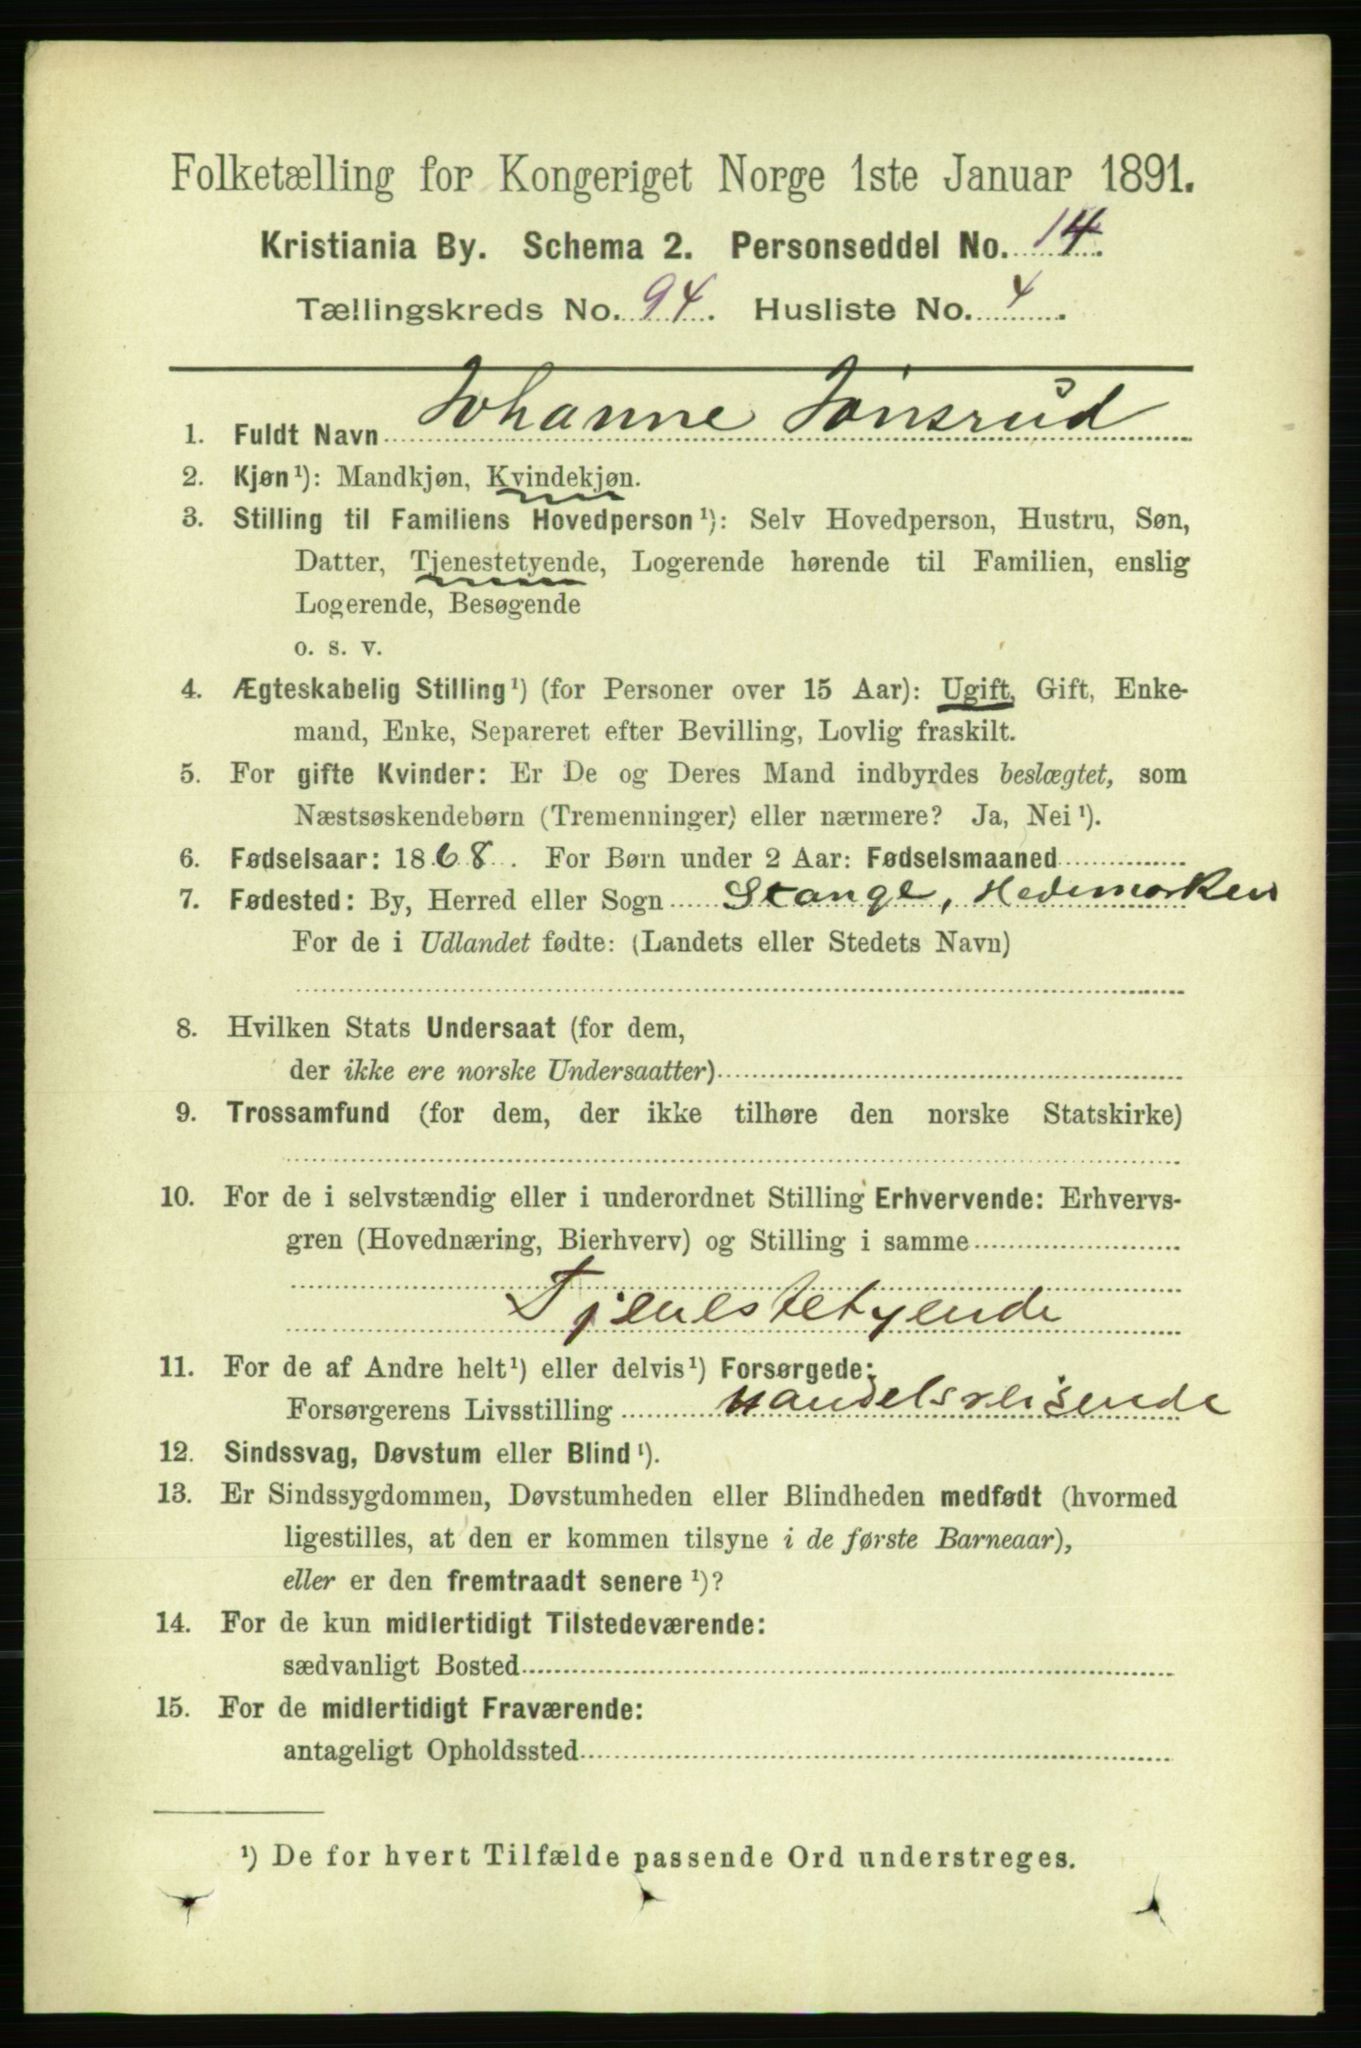 Folketælling for Kongeriget Norge 1ste Januar 1891.
Kristiania By. Schema 2. Personseddel No. 14.
Tællingskreds No. 94. Husliste No. 4.
1. Fuldt Navn Johanne Jönsrud
2. Kjøn¹): Mandkjøn, Kvindekjøn.
3. Stilling til Familiens Hovedperson¹): Selv Hovedperson, Hustru, Søn,
Datter, Tjenestetyende, Logerende hørende til Familien, enslig
Logerende, Besøgende
o. s. v.
4. Ægteskabelig Stilling¹) (for Personer over 15 Aar): Ugift, Gift, Enke-
mand, Enke, Separeret efter Bevilling, Lovlig fraskilt.
5. For gifte Kvinder: Er De og Deres Mand indbyrdes beslægtet, som
Næstsøskendebørn (Tremenninger) eller nærmere? Ja, Nei¹).
6. Fødselsaar: 1868. For Børn under 2 Aar: Fødselsmaaned
7. Fødested: By, Herred eller Sogn Stange, Hedemarken
For de i Udlandet fødte: (Landets eller Stedets Navn)
8. Hvilken Stats Undersaat (for dem,
der ikke ere norske Undersaatter)
9. Trossamfund (for dem, der ikke tilhøre den norske Statskirke)
10. For de i selvstændig eller i underordnet Stilling Erhvervende: Erhvervs-
gren (Hovednæring, Bierhverv) og Stilling i samme
Tjenestetyende
11. For de af Andre helt¹) eller delvis¹) Forsørgede:
Forsørgerens Livsstilling Handelsreisende
12. Sindssvag, Døvstum eller Blind¹).
13. Er Sindssygdommen, Døvstumheden eller Blindheden medfødt (hvormed
ligestilles, at den er kommen tilsyne i de første Barneaar),
eller er den fremtraadt senere¹)?
14. For de kun midlertidigt Tilstedeværende:
sædvanligt Bosted
15. For de midlertidigt Fraværende:
antageligt Opholdssted
¹) De for hvert Tilfælde passende Ord understreges.